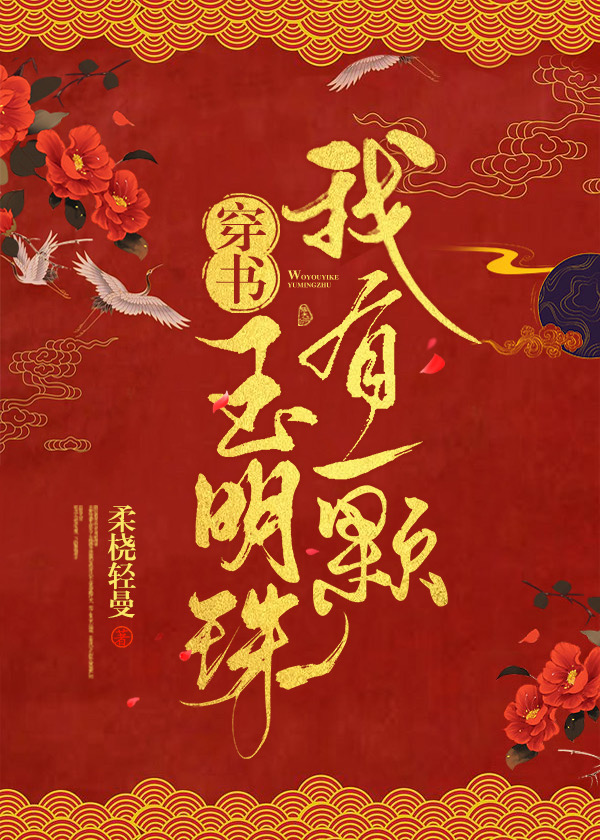 穿书
我有一颗
玉明珠
WOYOUYIKE
YUMINGZHU
柔桡轻曼
著